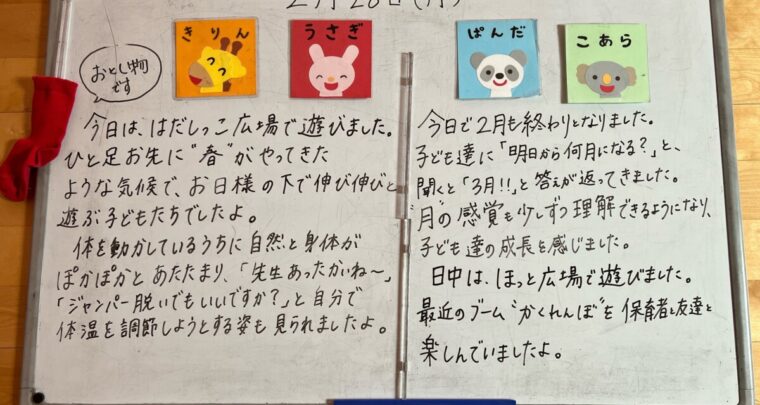 2月28日(月)
きりん
うさぎ
ぱんだ
こあら
おとし物
です
今日は、はだしっこ広場で遊びました。
ひと足お先に"春"がやってきた
ような気候で、お日様の下で伸び伸びと
遊ぶ子どもたちでしたよ。
体を動かしているうちに自然と身体が
ぽかぽかとあたたまり、「先生あったかいね〜」
「ジャンパー脱いでもいいですか?」と自分で
体温を調節しようとする姿も見られましたよ。
今日で2月も終わりとなりました。
子ども達に「明日から何月になる?」と、
聞くと「3月!!」と答えが返ってきました。
"月"の感覚も少しずつ理解できるようになり、
子ども達の成長を感じました。
日中は、ほっと広場で遊びました。
最近のブーム"かくれんぼ"を保育者と友達と
楽しんでいましたよ。